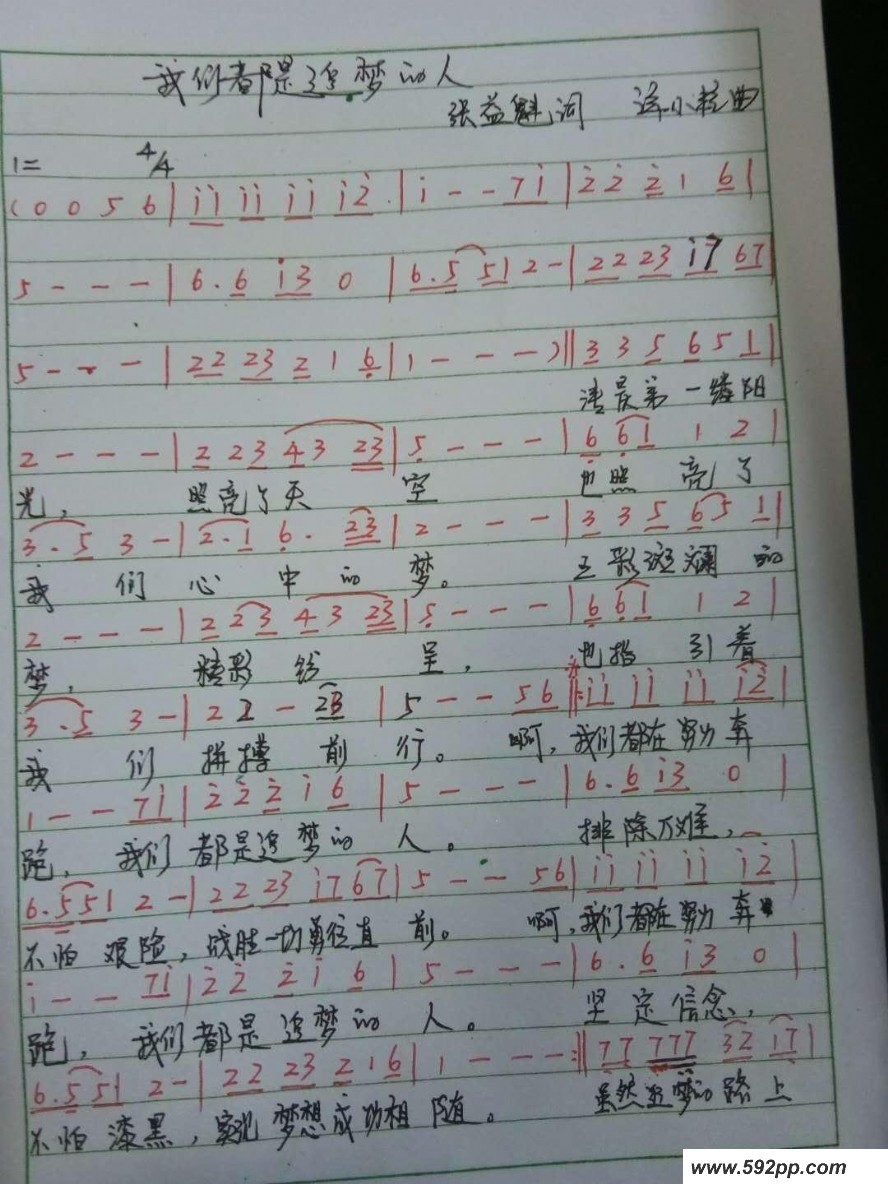 我们都是追梦的人
张益魁词 泽小粒曲
1= 4/4
(0 0 5 6 | i i i i i i i 2̇ | i - - 7 i | 2̇ 2̇ 2̇ 1 6 |
5 - - - | 6. 6 i 3 0 | 6. 5 5 1 2 - | 2 2 2 3 i 7 6 7 |
5 - - - | 2 2 2 3 2 1 6 | 1 - - - ) || 3 3 5 6 5 1 |
清晨第一缕阳
2 - - - | 2 2 3 4 3 2 3 | 5 - - - | 6 6 1 1 2 |
光, 照亮了天 空 也照 亮了
3 . 5 3 - | 2 . 1 6 . 2 3 | 2 - - - | 3 3 5 6 5 1 |
我 们 心 中 的 梦。 五彩斑斓 的
2 - - - | 2 2 3 4 3 2 3 | 5 - - - | 6 6 1 1 2 |
梦, 精彩 纷 呈, 也指 引着
3 . 5 3 - | 2 2 - 2 3 | 5 - - 5 6 ||: i i i i i i i 2̇ |
我 们 拼搏 前 行。 啊, 我们都在努力 奔
1 - - 7 i | 2̇ 2̇ 2̇ i 6 | 5 - - - | 6. 6 i 3 0 |
跑, 我们 都是追梦的 人。 排 除万难,
6. 5 5 1 2 - | 2 2 2 3 i 7 6 7 | 5 - - 5 6 | i i i i i i i 2̇ |
不怕 艰险, 战胜一切勇往直 前。 啊, 我们都在努力 奔
i - - 7 i | 2̇ 2̇ 2̇ i 6 | 5 - - - | 6 . 6 i 3 0 |
跑, 我们都是追梦的 人。 坚 定信念,
6. 5 5 1 2 - | 2 2 2 3 2 1 6 | 1 - - - :|| 7 7 7 7 7 3 2 i 7 |
不怕 漆黑, 实现 梦想成功相 随。 虽然追梦的路 上
www.592pp.com